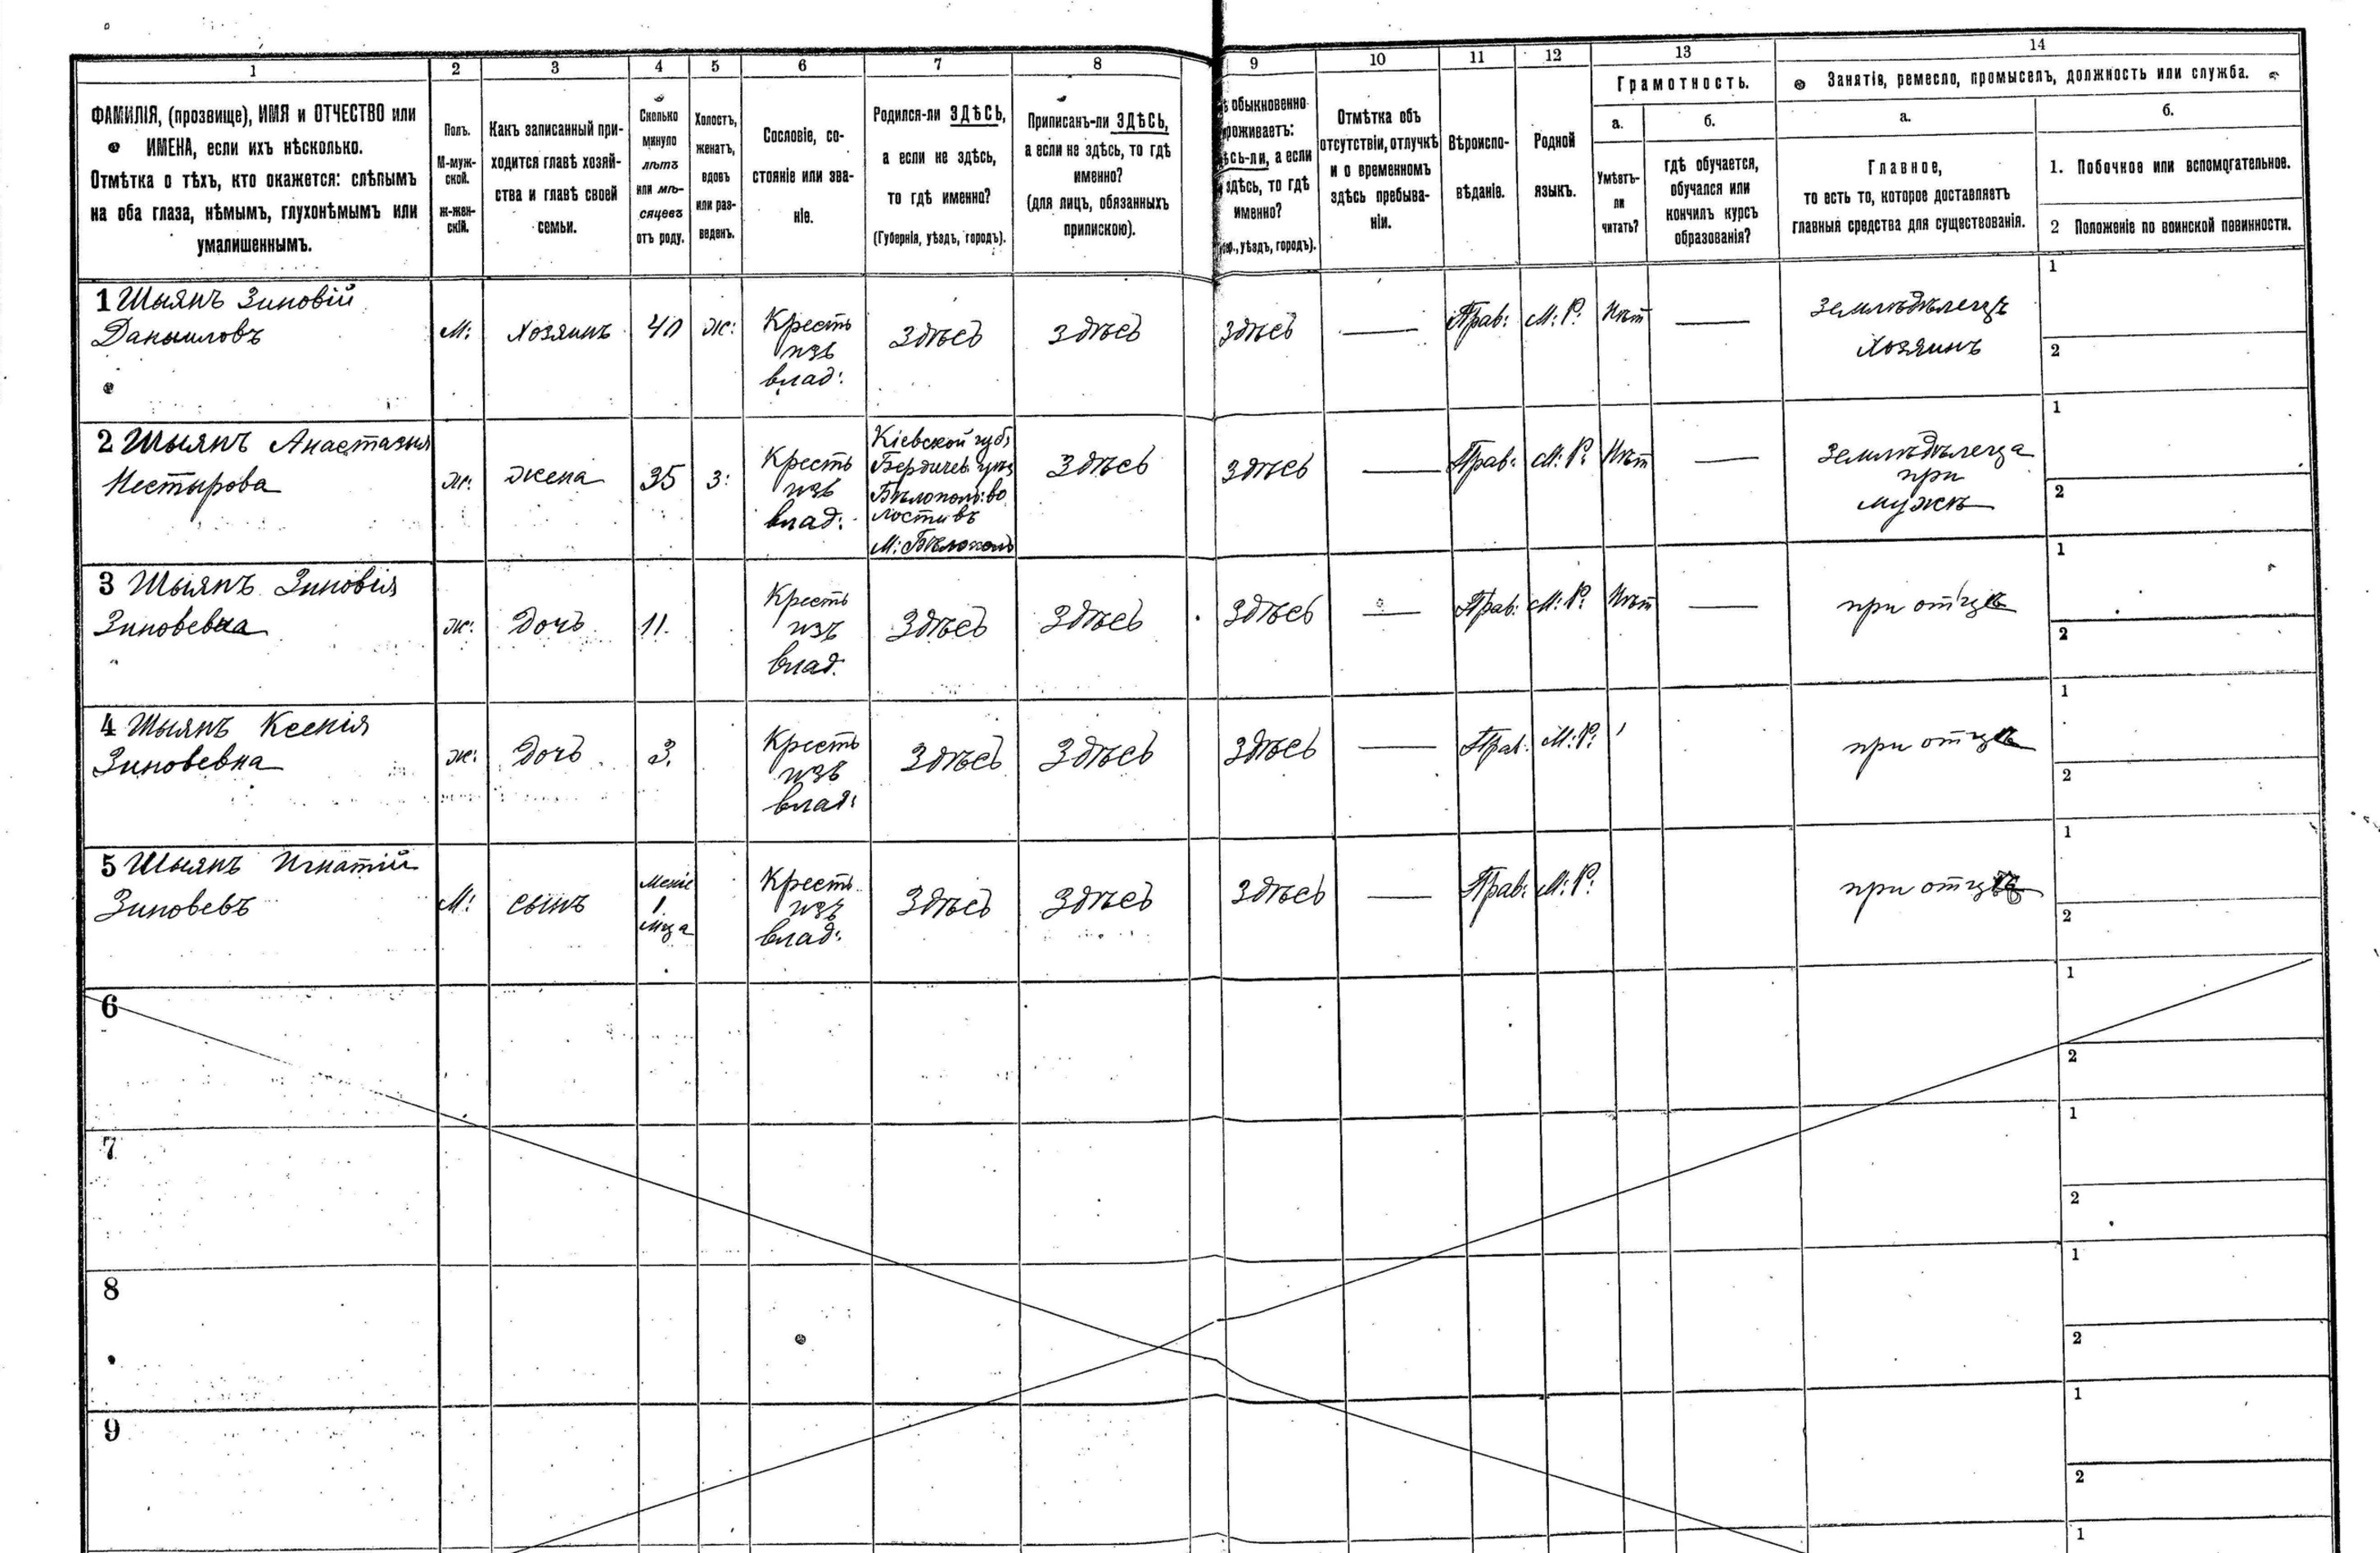 1 2 3 4 5 6 7 8 9 10 11 12 13 14
ФАМИЛІЯ, (прозвище), ИМЯ и ОТЧЕСТВО или
ИМЕНА, если ихъ нѣсколько.
Отмѣтка о тѣхъ, кто окажется: слѣпымъ
на оба глаза, нѣмымъ, глухонѣмымъ или
умалишеннымъ.
Полъ.
М-муж-
ской.
Ж-жен-
скій.
Какъ записанный при-
ходится главѣ хозяй-
ства и главѣ своей
семьи.
Сколько
минуло
лѣтъ
или мѣ-
сяцевъ
отъ роду.
Холостъ,
женатъ,
вдовъ
или раз-
веденъ.
Сословіе, со-
стояніе или зва-
ніе.
Родился-ли ЗДѢСЬ,
а если не здѣсь,
то гдѣ именно?
(Губернія, уѣздъ, городъ).
Приписанъ-ли ЗДѢСЬ,
а если не здѣсь, то гдѣ
именно?
(для лицъ, обязанныхъ
припискою).
обыкновенно
роживаетъ:
сь-ли, а если
здѣсь, то гдѣ
именно?
уѣздъ, городъ).
Отмѣтка объ
отсутствіи, отлучкѣ
и о временномъ
здѣсь пребыва-
ніи.
Вѣроиспо-
вѣданіе.
Родной
языкъ.
Грамотность.
а.
Умѣетъ-
ли
читать?
б.
гдѣ обучается,
обучался или
кончилъ курсъ
образованія?
Занятіе, ремесло, промыселъ, должность или служба.
а.
Главное,
то есть то, которое доставляетъ
главныя средства для существованія.
б.
1. Побочное или вспомогательное.
2 Положеніе по воинской повинности.
1 Шыянъ Зиновій
Даныиловъ
М:
Хозяинъ
40
ж:
Кресть
изъ
влад:
Здѣсь
Здѣсь
Здѣсь
—
Прав:
М: Р:
Нѣт
—
Земледѣлецъ
Хозяинъ
1
2
2 Шыянъ Анастазия
Нестырова
ж:
Жена
35
З:
Кресть
изъ
влад:
Кіевской губ:
Бердичев. уѣз
Бѣлопол: во
лости въ
М: Бѣлопол
Здѣсь
Здѣсь
—
Прав:
М: Р:
Нѣт
—
Земледѣлеца
при
мужѣ
1
2
3 Шыянъ Зиновія
Зиновевна
ж:
Дочь
11.
Кресть
изъ
влад.
Здѣсь
Здѣсь
Здѣсь
—
Прав:
М: Р:
Нѣт
—
при отцѣ
1
2
4 Шыянъ Ксенія
Зиновевна
ж:
Дочь
3.
Кресть
изъ
влад:
Здѣсь
Здѣсь
Здѣсь
—
Прав:
М: Р:
при отцѣ
1
2
5 Шыянъ Игнатій
Зиновевъ
М:
сынъ
1
Кресть
изъ
влад:
Здѣсь
Здѣсь
Здѣсь
—
Прав:
М: Р:
при отцѣ
1
2
6
1
2
7
1
2
8
1
2
9
1
2
1